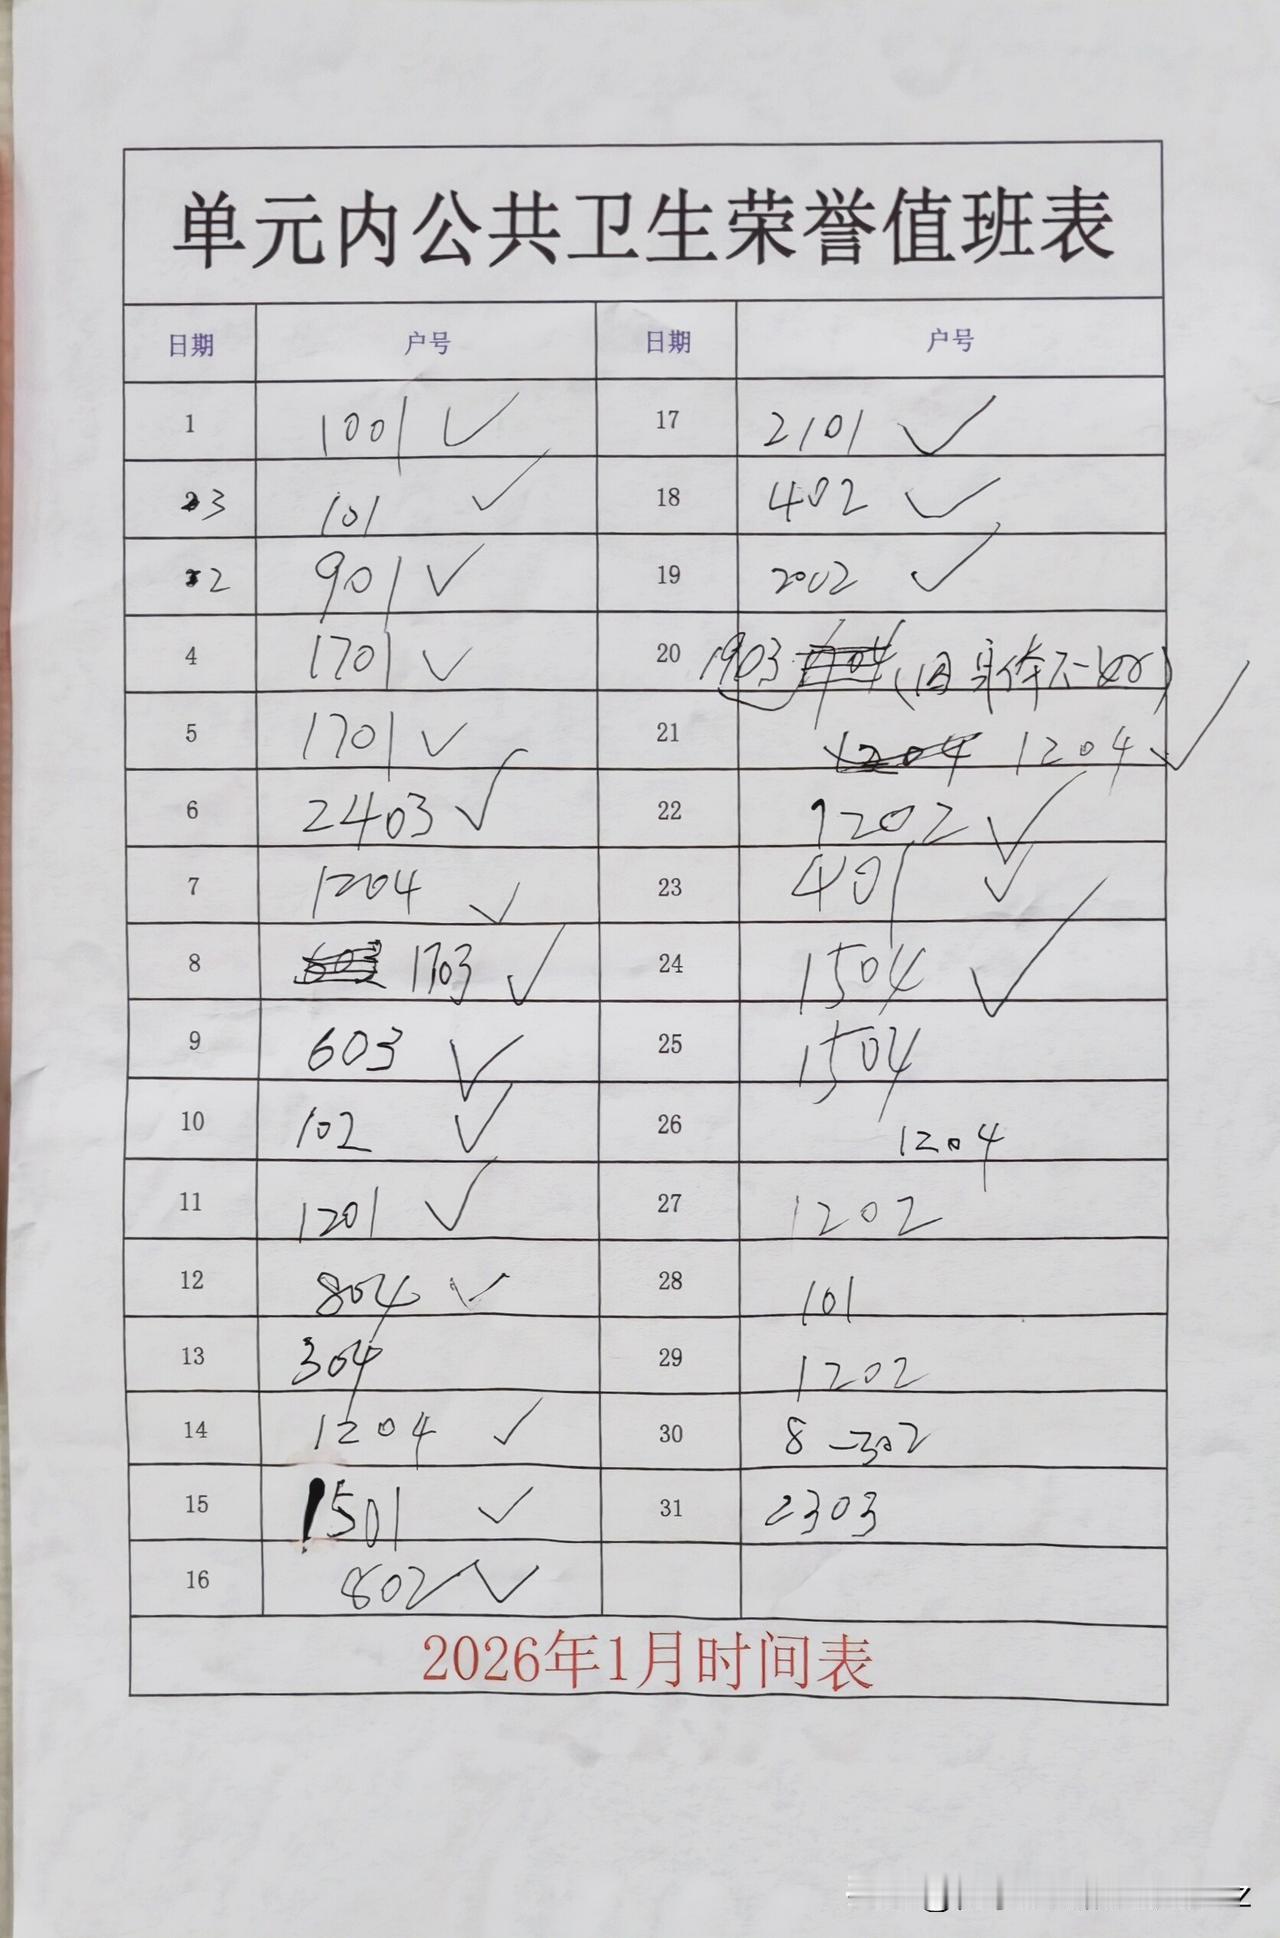 单元内公共卫生荣誉值班表
日期 户号 日期 户号
1 1001 ✓ 17 2101 ✓
3 101 ✓ 18 402 ✓
2 901 ✓ 19 2002 ✓
4 1701 ✓ 20 1903 (因身体不好)
5 1701 ✓ 21 1204 1204 ✓
6 2403 ✓ 22 1202 ✓
7 1204 ✓ 23 401 ✓
8 603 1703 ✓ 24 1504 ✓
9 603 ✓ 25 1504
10 102 ✓ 26 1204
11 1201 ✓ 27 1202
12 804 ✓ 28 101
13 304 29 1202
14 1204 ✓ 30 8-302
15 1501 ✓ 31 2303
16 802 ✓
2026年1月时间表